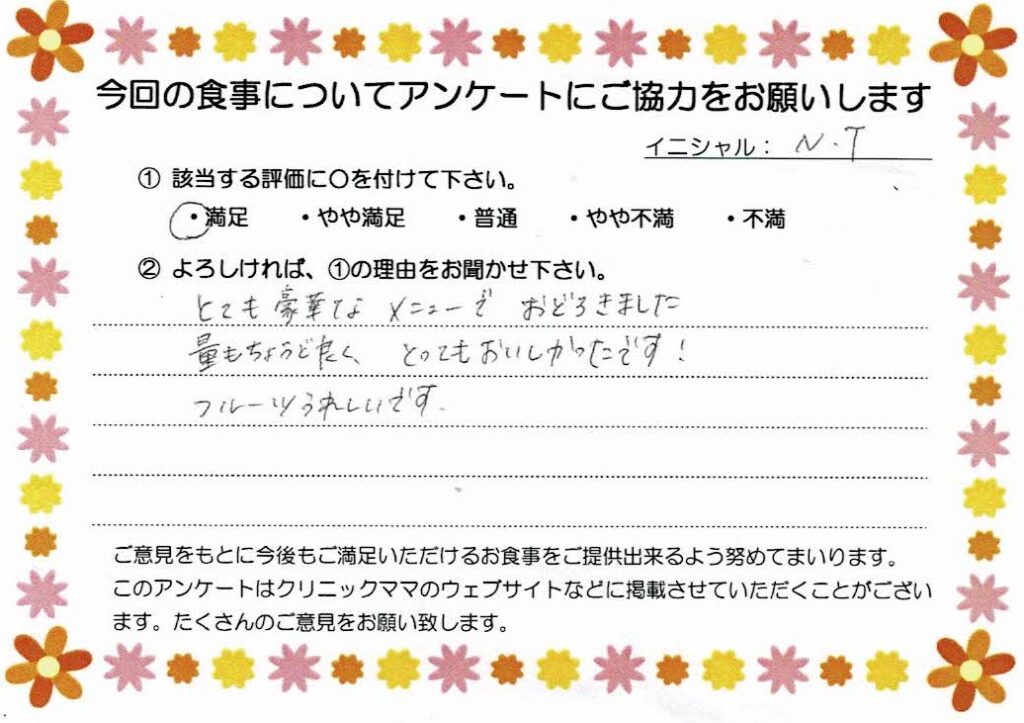 今回の食事についてアンケートにご協力をお願いします
イニシャル： N.T
① 該当する評価に〇を付けて下さい。
・満足 ・やや満足 ・普通 ・やや不満 ・不満
② よろしければ、①の理由をお聞かせ下さい。
とても豪華な メニューで おどろきました
量もちょうど良く、 とってもおいしかったです！
フルーツうれしいです.
ご意見をもとに今後もご満足いただけるお食事をご提供出来るよう努めてまいります。
このアンケートはクリニックママのウェブサイトなどに掲載させていただくことがござい
ます。たくさんのご意見をお願い致します。